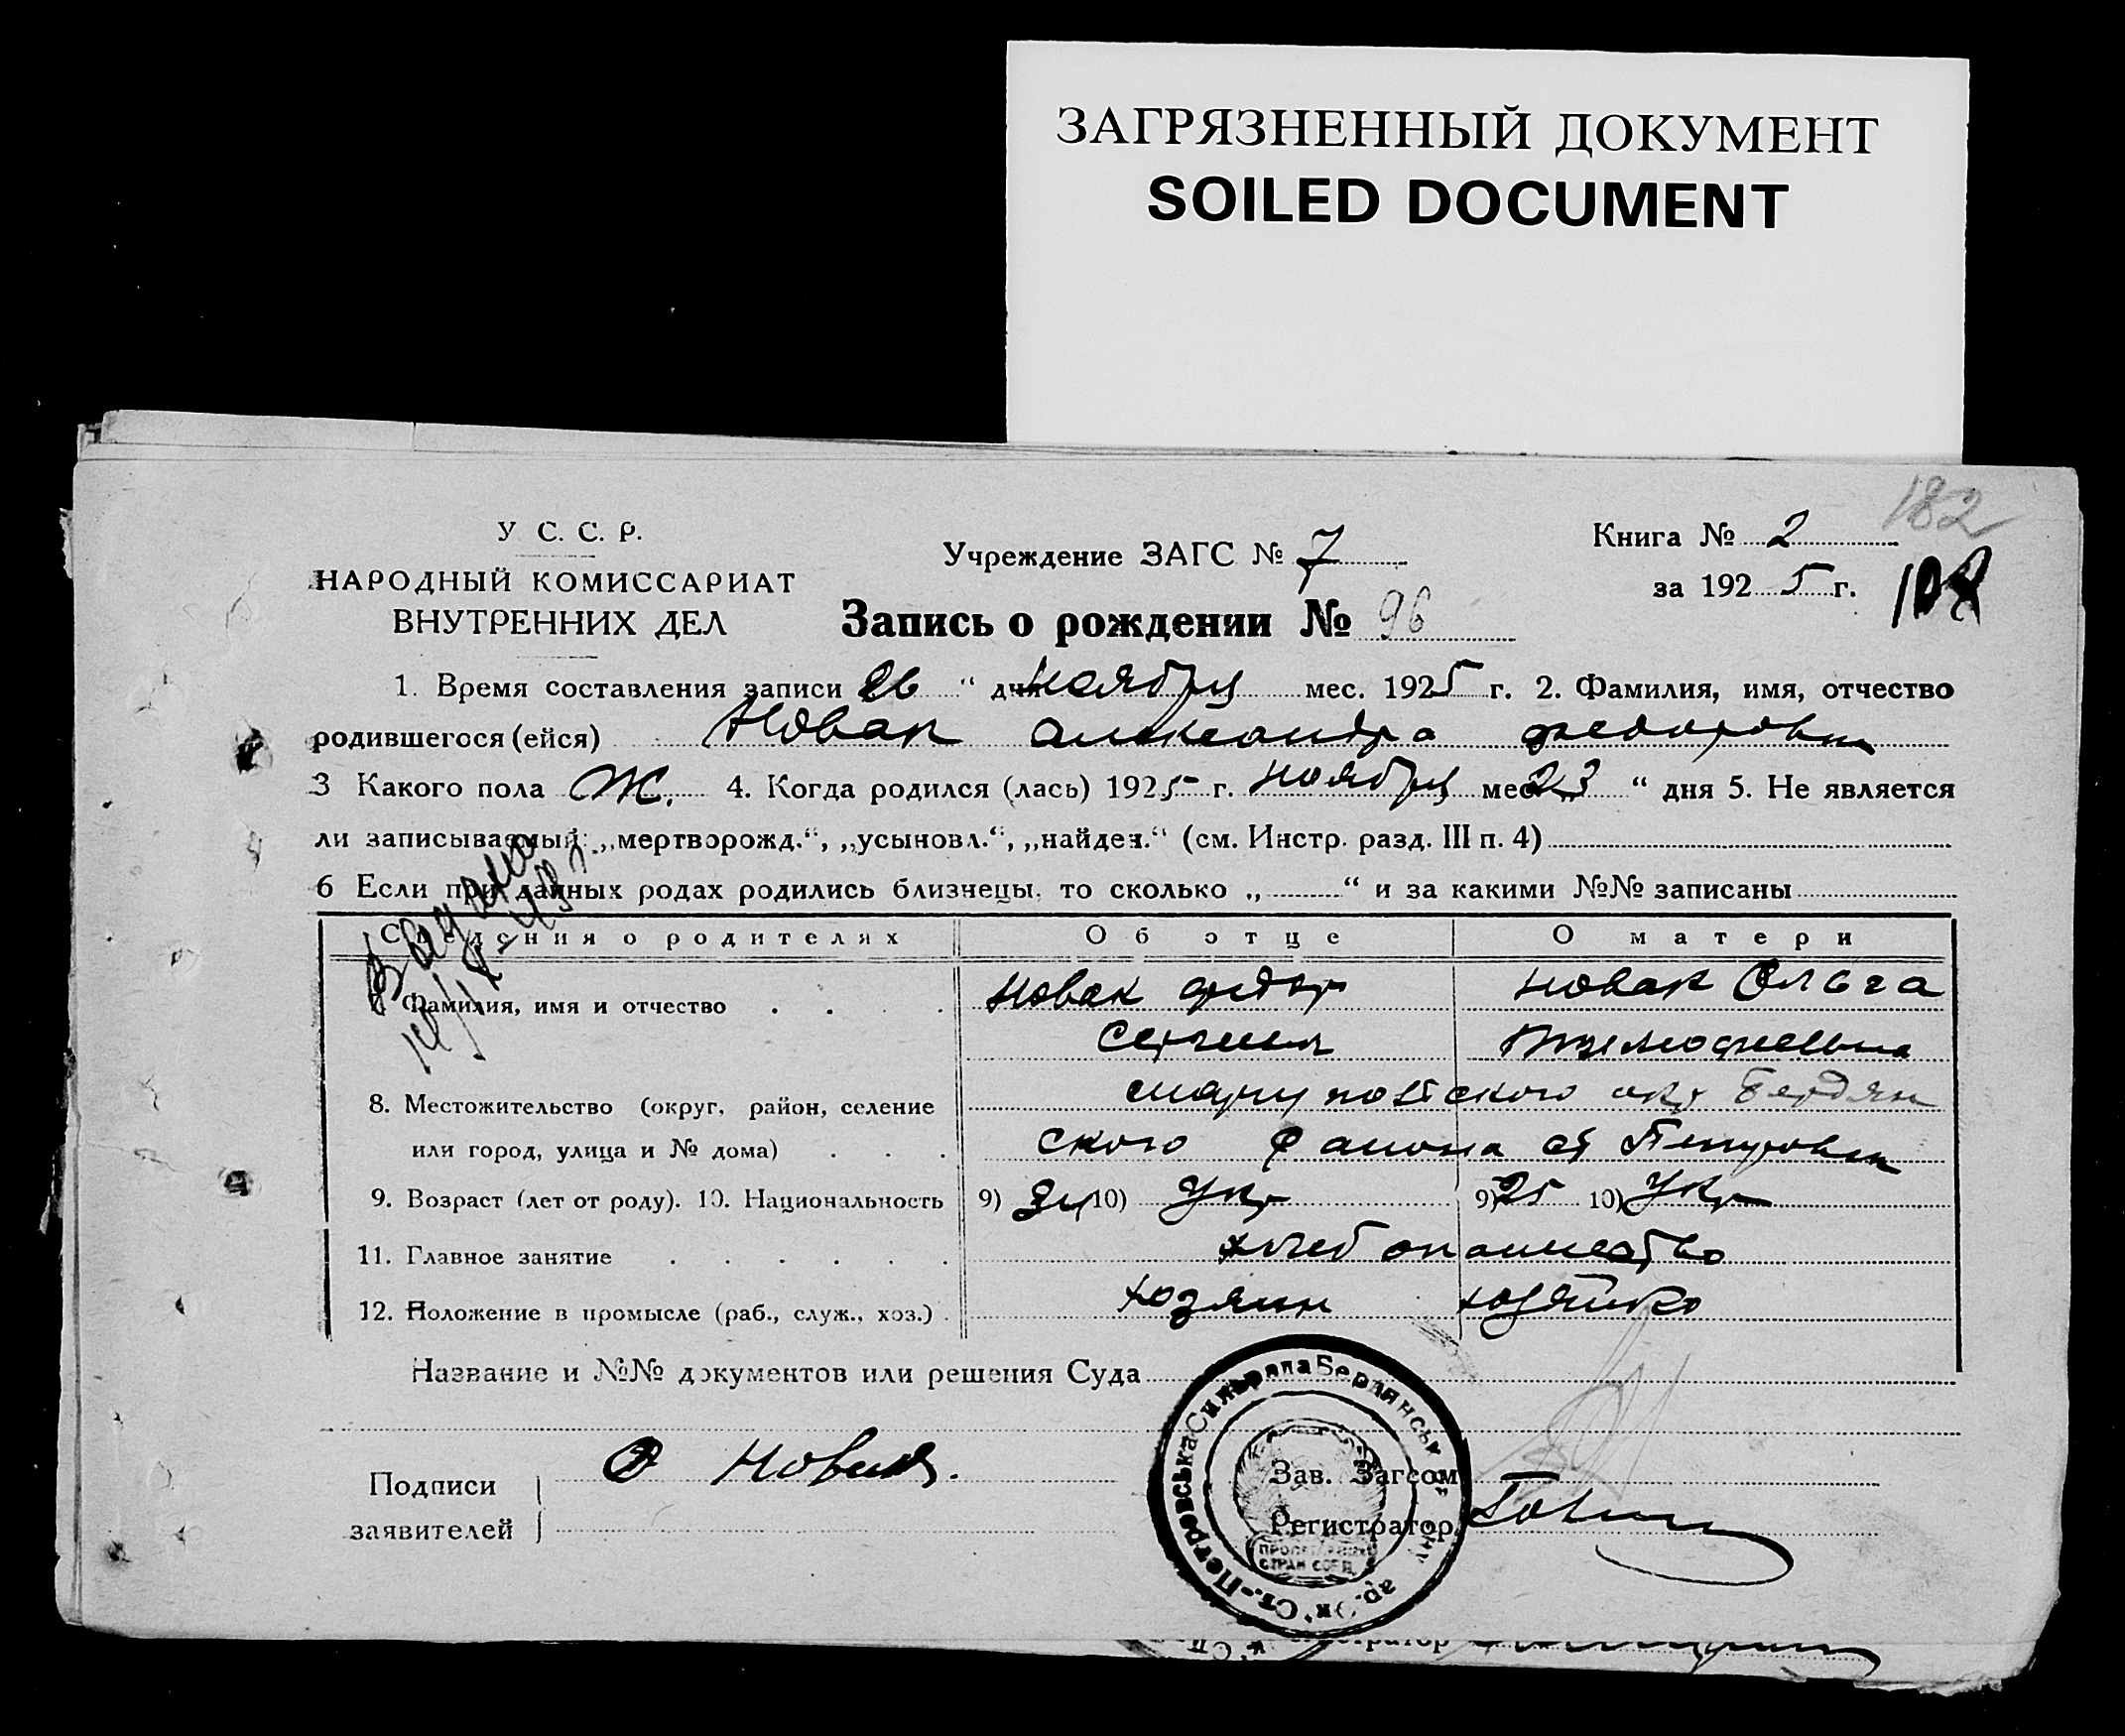 ЗАГРЯЗНЕННЫЙ ДОКУМЕНТ
SOILED DOCUMENT
182
У С. С. Р.
НАРОДНЫЙ КОМИССАРИАТ
ВНУТРЕННИХ ДЕЛ
Учреждение ЗАГС № 7
Книга № 2
за 1925 г.
108
Запись о рождении № 96
1. Время составления записи 26 “ дня ноября мес. 1925 г. 2. Фамилия, имя, отчество
родившегося (ейся) Новак Александра Федоровна
3 Какого пола Ж. 4. Когда родился (лась) 1925 г. ноября мес. „23 “ дня 5. Не является
ли записываемый: „мертворожд.“, „усыновл.“, „найден.“ (см. Инстр. разд. III п. 4)
6 Если при данных родах родились близнецы, то сколько „ “ и за какими №№ записаны
Сведения о родителях Об отце О матери
Фамилия, имя и отчество Новак Федор Новак Ольга
8. Местожительство (округ, район, селение Мариупольского окр Бердян
или город, улица и № дома) ского района ст Петровка
9. Возраст (лет от роду). 10. Национальность 9) 10) Укр 9) 25 10) Укр
11. Главное занятие хлебопашество
12. Положение в промысле (раб., служ., хоз.) хозяин хозяйка
Название и №№ документов или решения Суда
Подписи
заявителей
Новак.
Зав. Загсом
Регистратор
Ст.-Петровська Сильрада Бердянськ